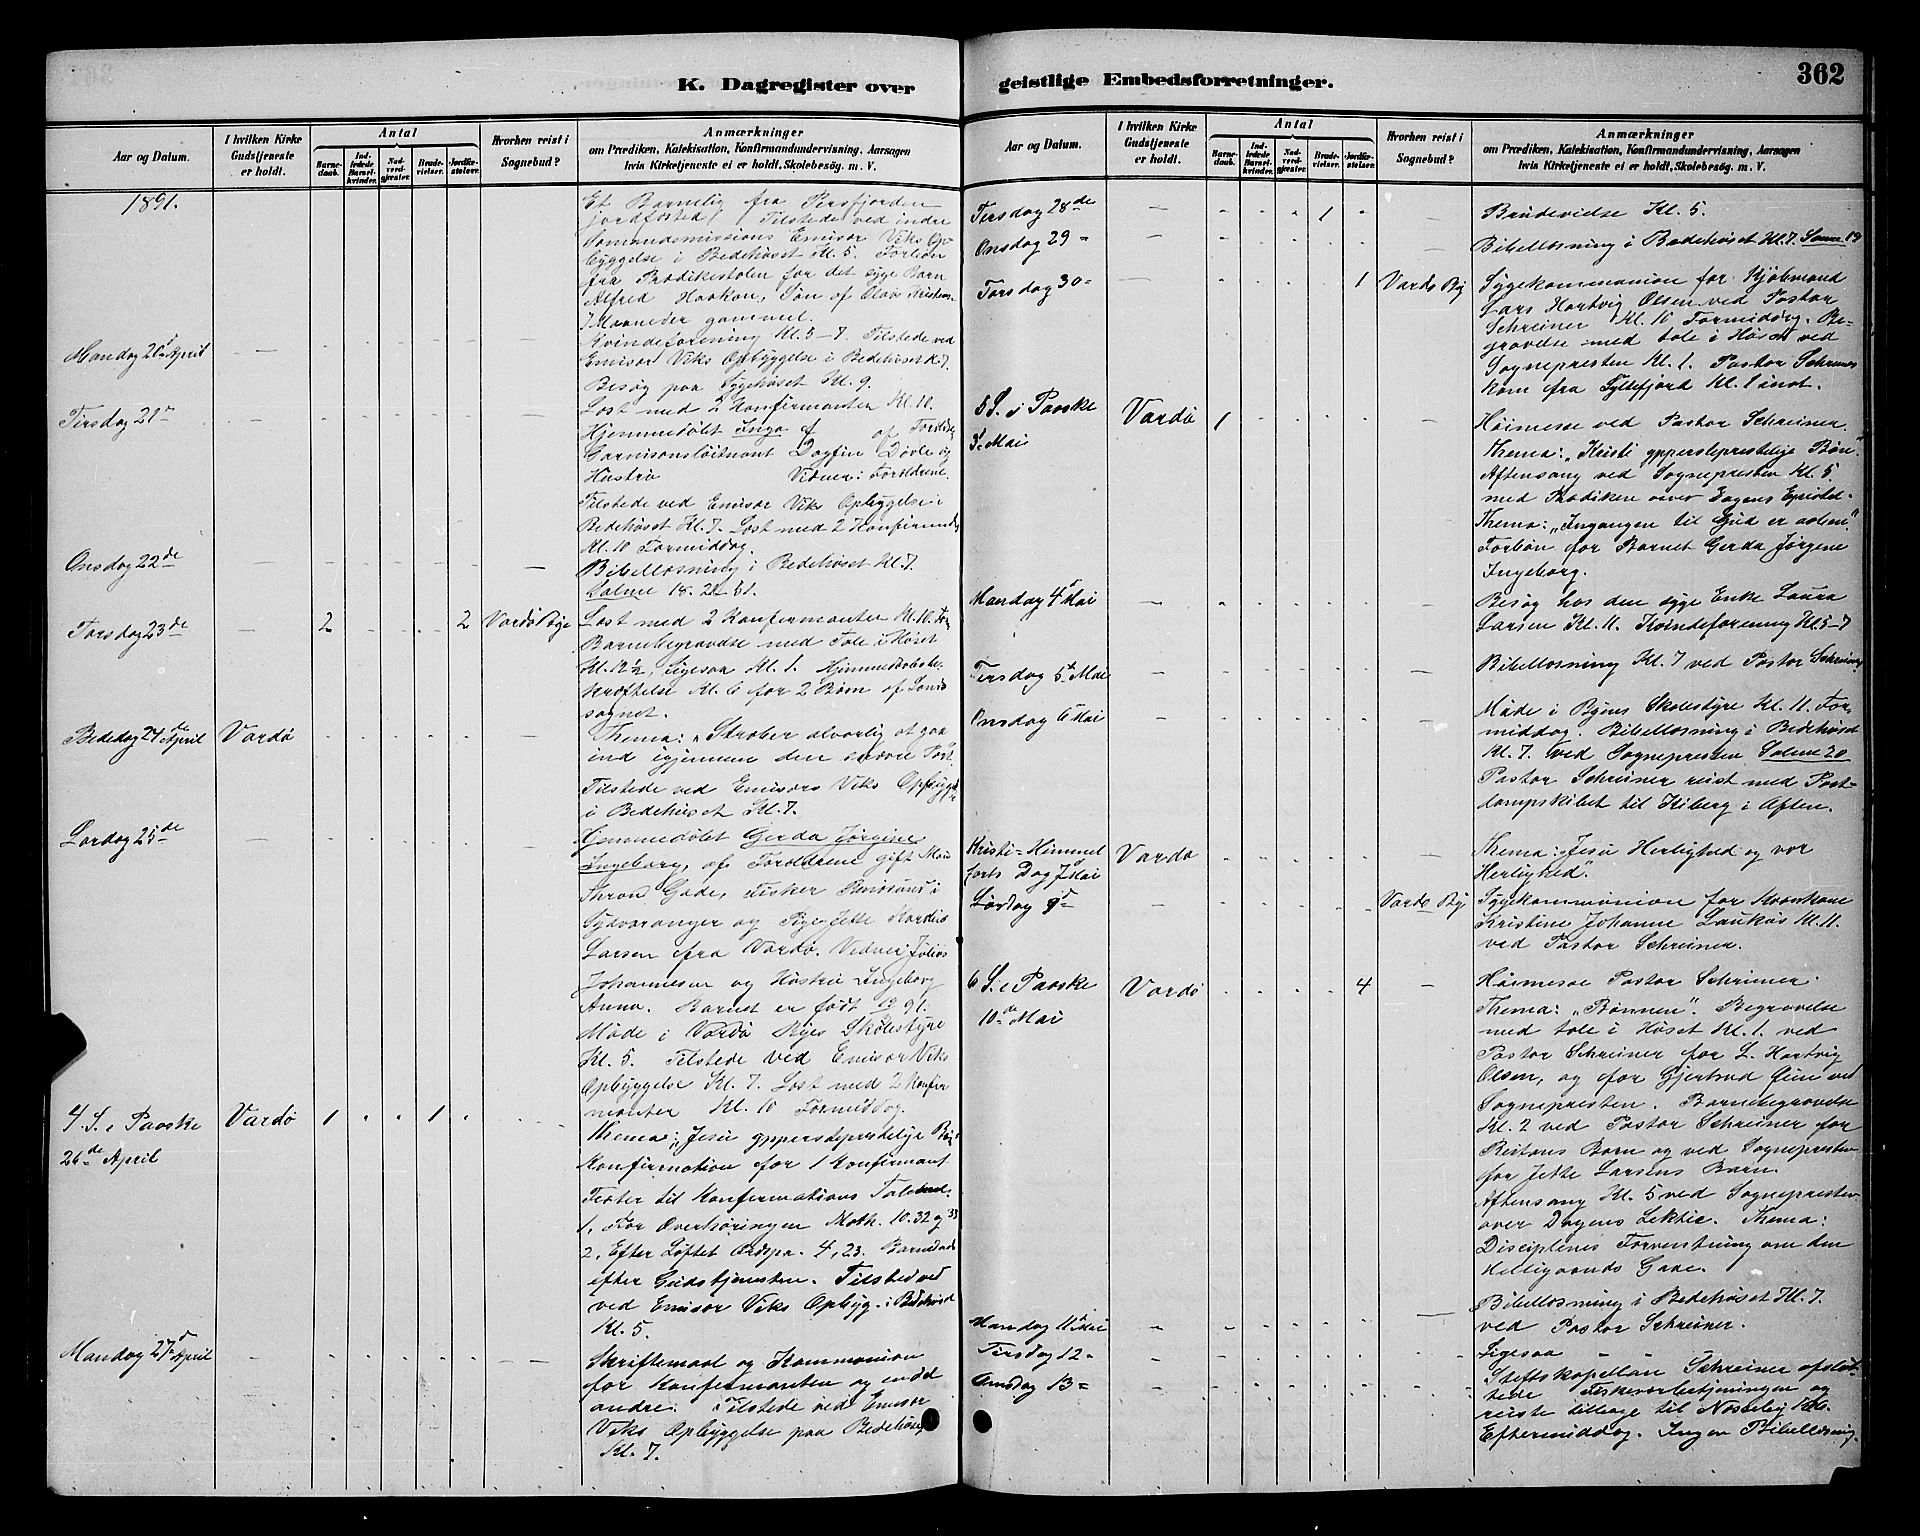 K. Dagregister over
geistlige Embedsforretninger.
362
Aar og Datum.
I hvilken Kirke Gudstjeneste er holdt.
Antal
Barnedaab.
Indledede Barselkvinder.
Nadverdgjæster.
Brudevielser.
Jordfæstelser.
Hvorhen reist i Sognebud?
Anmærkninger
om Prædiken, Katekisation, Konfirmandundervisning, Aarsagen
hvis Kirketjeneste ei er holdt, Skolebesög. m. V.
1891.
Et Barnelig fra Persfjorden
jordfæsted. Tilstede ved indre
Sømandsmissions Emisær Viks Op-
byggelse i Bedehuset Kl. 5. Forbøn
fra Prædikestolen for det syge Barn
Alfred Haakon, Søn af Olava
7 Maaneder gammel.
Mandag 20de April — Kvindeforening Kl. 5–7. Tilstede ved
Emisær Viks Opbyggelse i Bedehuset Kl. 7.
Besøg paa Sygehuset Kl. 9.
Tirsdag 21de — Læst med 2 Konfirmanter Kl. 10.
Hjemmedøbt Inga af Foreldre
Garnisonsløitnant Dagfin Døvle og
Hustru Vidner: Forældrene.
Tilstede ved Emisær Viks Opbyggelse i
Bedehuset Kl. 7. Læst med 2 Konfirmander
Kl. 10 Formiddag.
Onsdag 22de — Bibellæsning i Bedehuset Kl. 7.
Salme 18.
Torsdag 23de — 2 2 Vardø Bye Læst med 2 Konfirmanter Kl. 10. To
Barnebegravelse med Tale i Huset
Kl. 12 ½, Ligesaa Kl. 1. Hjemmedaabsbe-
kræftelse Kl. 6 for 2 Børn af Lands
sognet.
Bededag 24de April Vardø — Thema: "Stræber alvorlig at gaa
ind igjennem den snævre Port.
Tilstede ved Emisærs Viks Opbygg
i Bedehuset Kl. 7.
Lørdag 25de — Hjemmedøbt Gerda Jørgine
Ingeborg, af Forældrene gift Mand
Thron Gade, Fisker i
Sydvaranger og Pige Jette
Larsen fra Vardø. Vidner: Julius
Johannesen og Hustru Ingeborg
Anna. Barnet er født 91.
Møde i Vardø Byes Skolestyre
Kl. 5. Tilstede ved Emisær Viks
Opbyggelse Kl. 7. Læst med 2 Konfir
manter Kl. 10 Formiddag.
4. S. e Paaske Vardø 1 1 Thema: "Jesu ypperstepræstelige Bøn
26de April Konfirmation for 1 Konfirmant
Texter til Konfirmations Talerne
1, Før Overhøringen Math. 10. 32 og 33
2, Efter Løftet Ordspr. 4, 23. Barnedaab
efter Gudstjenesten. Tilsted ved
ved Emisær Viks Opbyg. i Bedehuset
Kl. 5.
Mandag 27de April — Skriftemaal og Kommunion
for Konfirmanten og endel
andre. Tilstede ved Emisær
Viks Opbyggelse paa Bedehuset
Kl. 7.
Aar og Datum.
I hvilken Kirke Gudstjeneste er holdt.
Antal
Barnedaab.
Indledede Barselkvinder.
Nadverdgjæster.
Brudevielser.
Jordfæstelser.
Hvorhen reist i Sognebud?
Anmærkninger
om Prædiken, Katekisation, Konfirmandundervisning, Aarsagen
hvis Kirketjeneste ei er holdt, Skolebesög. m. V.
Tirsdag 28de — 1 — Brudevielse Kl. 5.
Onsdag 29 — Bibellæsning i Bedehuset Kl. 7. Salme 19
Torsdag 30 — 1 Vardø By Sygekommunion for Kjøbmand
Lars Hartvig Olsen ved Pastor
Schreiner Kl. 10 Formiddag. Be-
gravelse med tale i Huset ved
Sognepresten Kl. 1. Pastor Schreiner
kom fra Syltefjord Kl. 1 inat.
5 S. e Paaske Vardø 1 — Høimesse ved Pastor Schreiner.
3. Mai Thema: "Kristi ypperstepræstelige Bøn."
Aftensang ved Sognepresten Kl. 5
med Prædiken over Dagens Epistel.
Thema: "Ingangen til Gud er aaben."
Forbøn for Barnet Gerda Jørgine
Ingeborg.
Mandag 4 Mai — Besøg hos den syge Enke Laura
Larsen Kl. 11. Kvindeforening Kl. 5–7
Tirsdag 5te Mai — Bibellæsning Kl. 7 ved Pastor Schreiner
Onsdag 6 Mai — Møde i Byens Skolestyre Kl. 11. For-
middag. Bibellæsning i Bedehuset
Kl. 7. ved Sognepresten Salme 20
Pastor Schreiner reist med Post-
dampskibet til Kiberg i Aften.
Kristi-Himmel Vardø — Thema: Jesu Herlighed og vor
farts Dag 7 Mai Herlighed".
Lørdag 9de — Vardø By Sygekommunion for Kvænkone
Kristine Johanne Kl. 11.
ved Pastor Schreiner.
6 S. e Paaske Vardø 4 — Høimesse Pastor Schreiner.
10de Mai Thema: "Bønnen". Begravelse
med tale i Huset Kl. 1. ved
Pastor Schreiner for L. Hartvig
Olsen, og for Gjertrud ved
Sognepresten. Barnebegravelse
Kl. 2 ved Pastor Schreiner for
Barn og ved Sognepresten
for Jette Larsens Barn.
Aftensang Kl. 5 ved Sognepresten
over Dagens Lektie. Thema:
Disciplenes Forventning om den
Helligaands Gave.
Mandag 11 Mai — Bibellæsning i Bedehuset Kl. 7.
ved Pastor Schreiner.
Tirsdag 12 — Ligesaa
Onsdag 13 — Stiftskapellan Schreiner afslut-
tede Fiskerarbetjeningen og
reiste tilbage til Nesseby
Eftermiddag. Ingen Bibellæsning.